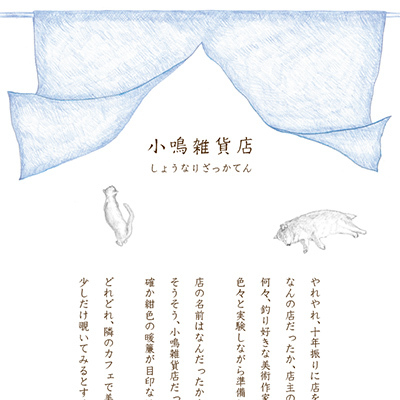 小鳴雑貨店
しょうなりざっかてん
やれやれ、十年振りに店を
なんの店だったか、店主の
何々、釣り好きな美術作家
色々と実験しながら準備
店の名前はなんだったか
そうそう、小鳴雑貨店だっ
確か紺色の暖簾が目印な
どれどれ、隣のカフェで美
少しだけ覗いてみるとす